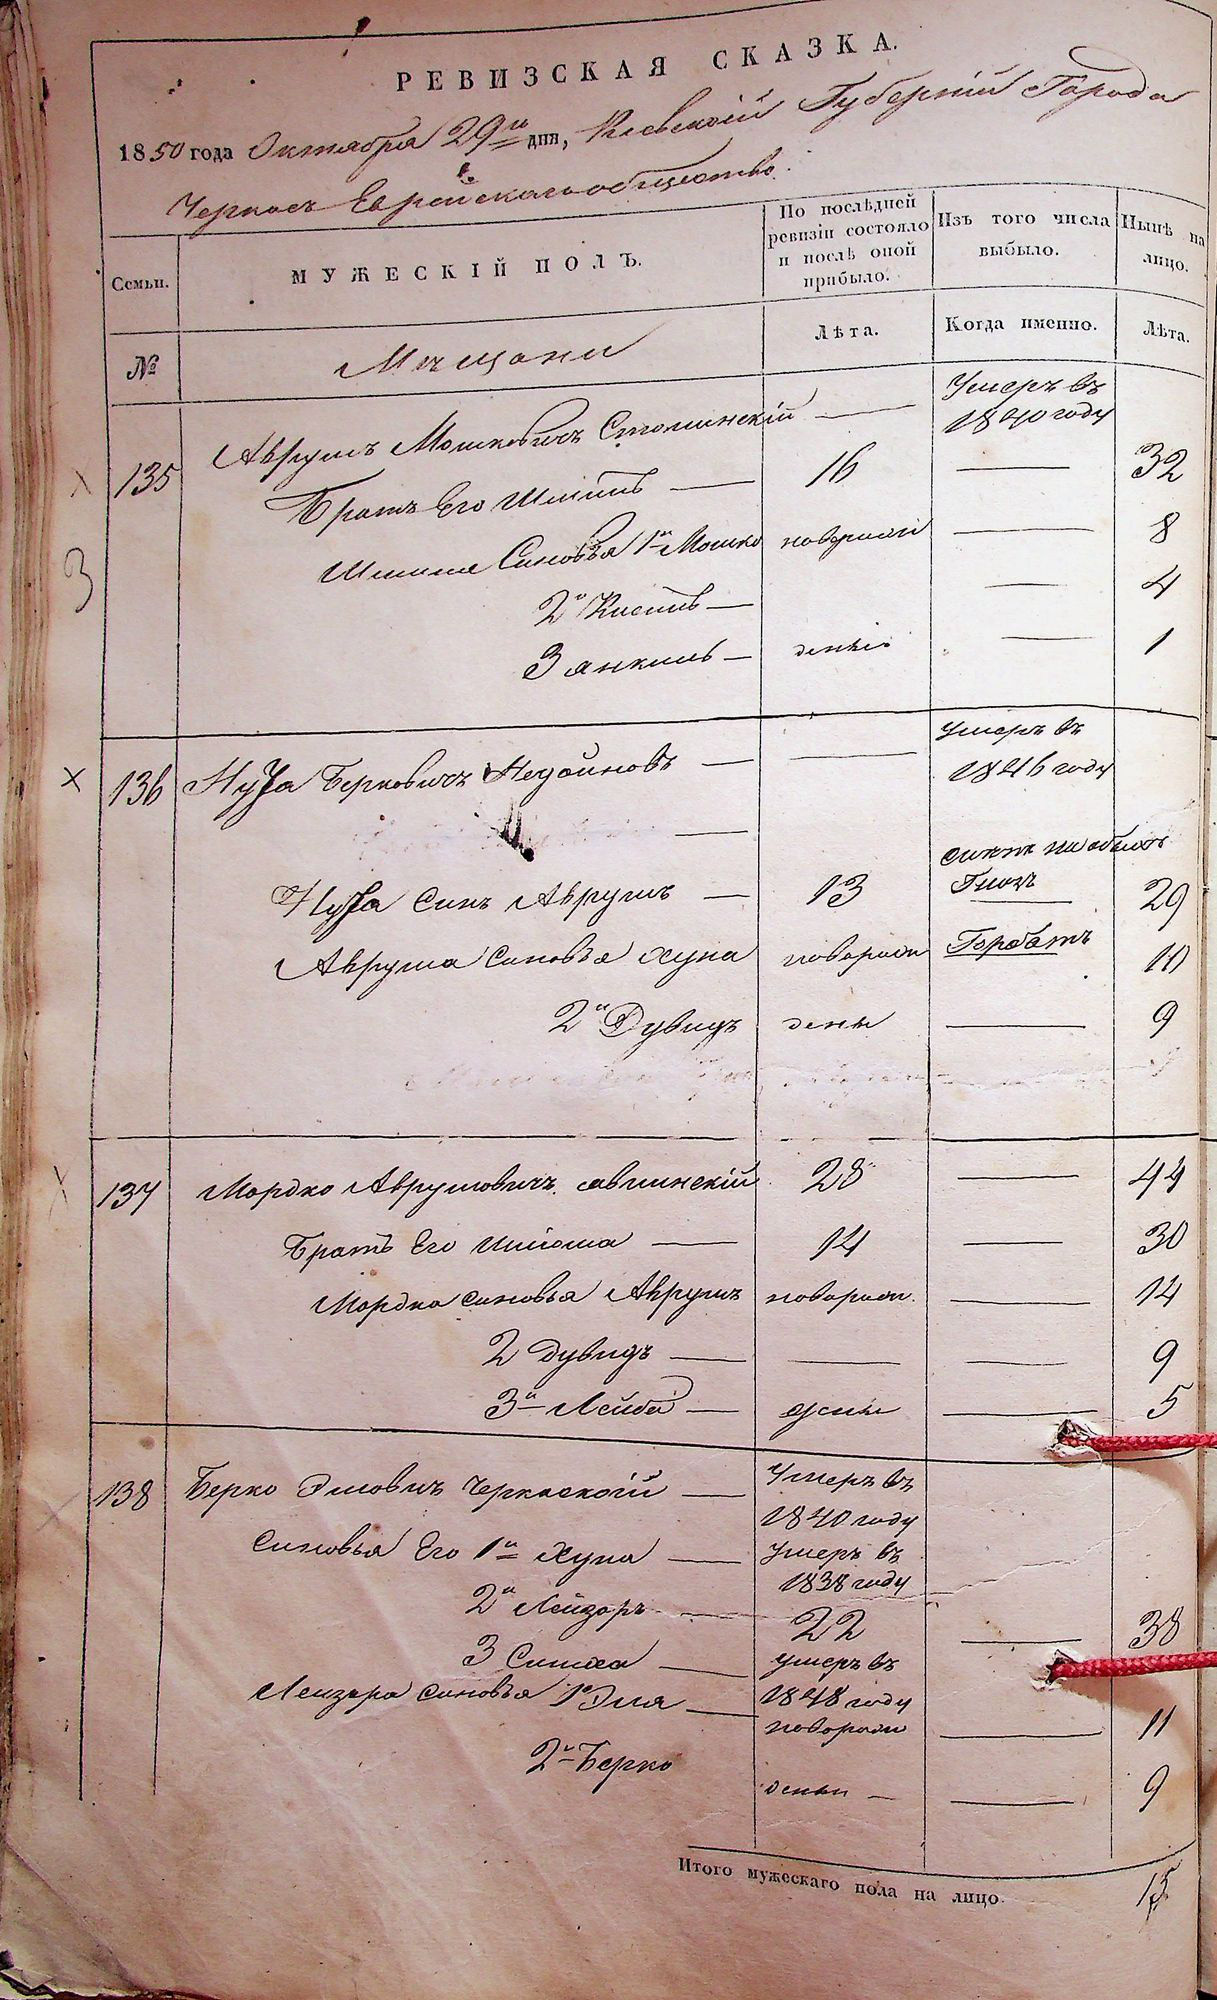 РЕВИЗСКАЯ СКАЗКА.
1850 года Октября 29го дня, Киевской Губерніи Города
Черкасъ Еврейскаго общества.
Семьи.
МУЖЕСКІЙ ПОЛЪ.
По послѣдней ревизіи состояло и послѣ оной прибыло.
Изъ того числа выбыло.
Нынѣ на лицо.
№
Мещани
Лѣта.
Когда именно.
Лѣта.
135 Аврумъ Мошковичъ — Умеръ въ 1840 году
Братъ Его — 16 — 32
Синовья 1й Мошко новорожд — 8
2й — 4
3 Янкель — 1
136 Нуза Берковичъ — — Умеръ въ 1846 году
Нуза Синъ Аврумъ — 13 29
Аврума Синовья Хуна новорожд Горбатъ 10
2й Дувидъ дены — 9
137 Мордко Аврумовичъ 28 — 44
Братъ Его — 14 — 30
Мордка Синовья Аврумъ новорожд. — 14
2 Дувидъ — — — 9
3й Лейба — дены — 5
138 Берко Элиовичъ Черкаскогій — Умеръ въ 1840 году
Синовья Его 1й Хуна — Умеръ въ 1838 году
2й Лейзоръ — 22 — 38
3 Симха — умеръ въ 1848 году
Лейзера Синовья 1й Эля — новорожд — 11
2й Берко дены — — 9
Итого мужескаго пола на лицо. 15